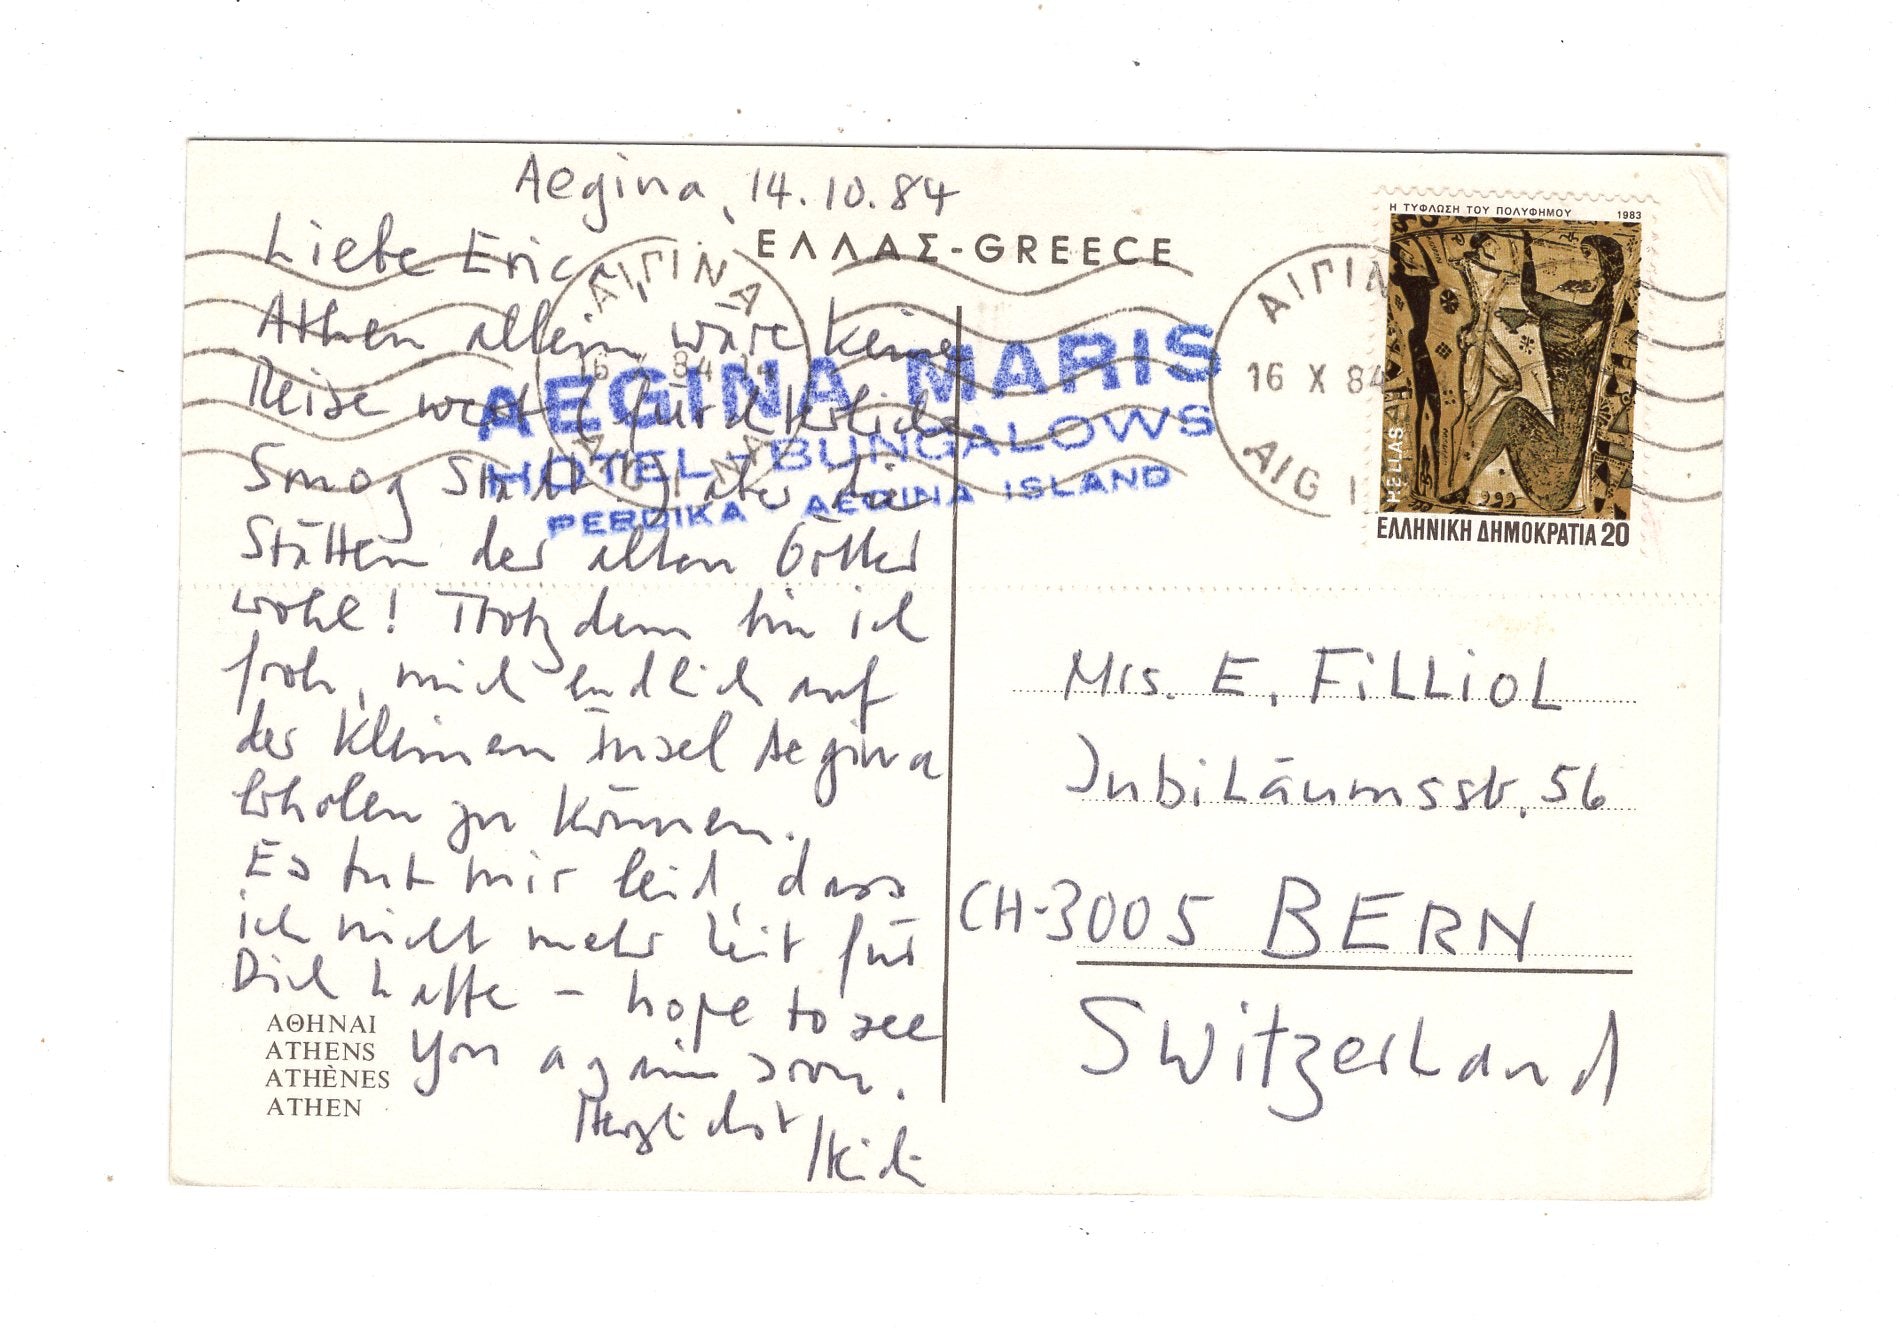 Aegina, 14.10.84
Liebe Erica,
Athen allein wäre keine
Reise wert (fürchterliche
Smog Stadt), aber die
Stätten der alten Götter
wohl! Trotzdem bin ich
froh, mich endlich auf
der kleinen Insel Aegina
erholen zu können.
Es tut mir leid, dass
ich nicht mehr Zeit für
Dich hatte - hope to see
you again soon.
Herzlichst
Heidi
ΑΘΗΝΑΙ
ATHENS
ATHÈNES
ATHEN
ΕΛΛΑΣ-GREECE
ΑΙΓΙΝΑ
16 X 84 14
AEGINA MARIS
HOTEL-BUNGALOWS
PERDIKA AEGINA ISLAND
ΑΙΓΙΝ
16 X 84
AIG
Η ΤΥΦΛΩΣΗ ΤΟΥ ΠΟΛΥΦΗΜΟΥ 1983
HELLAS
ΕΛΛΗΝΙΚΗ ΔΗΜΟΚΡΑΤΙΑ 20
Mrs. E. FiLLioL
Jubiläumsstr. 56
CH-3005 BERN
Switzerland